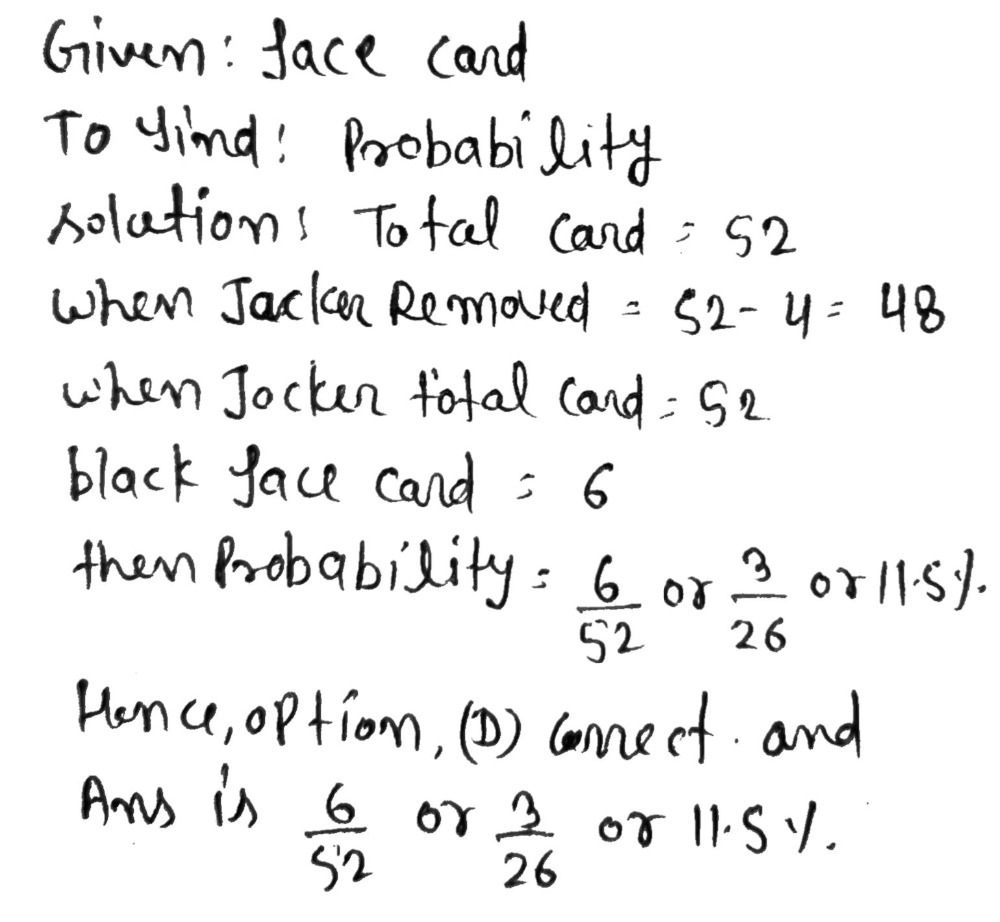 Given: face card
To find: Probability
solution: Total card = 52
when Jacker Removed = 52 - 4 = 48
when Jocker total card = 52
black face card = 6
then Probability = 6/52 or 3/26 or 11.5%.
Hence, option, (D) correct. and
Ans is 6/52 or 3/26 or 11.5%.